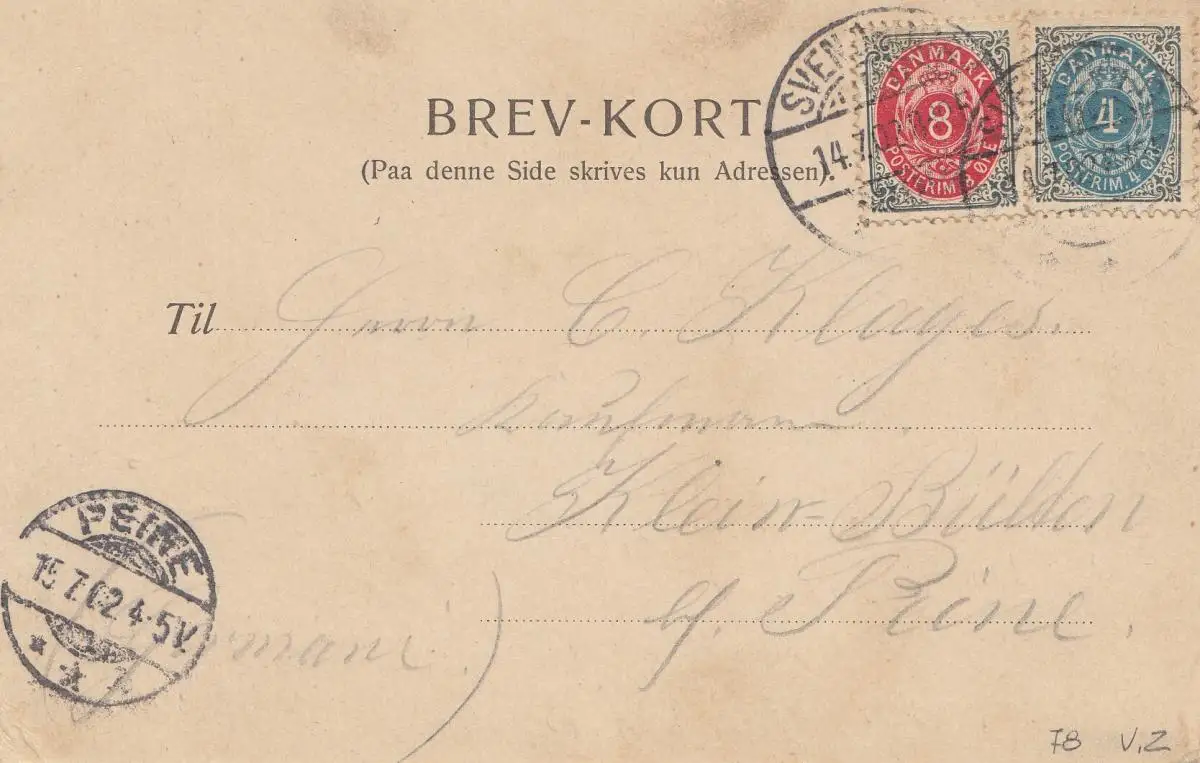 BREV-KORT
(Paa denne Side skrives kun Adressen).
DANMARK
8
POSTFRIM. 8 ØRE
DANMARK
4
POSTFRIM. 4 ØRE
SVEN
14.7.02
Til Herrn C. Klages.
Kaufmann
Klein-Bülten
b/. Peine.
PEINE
15.7.02.4-5V.
78 V,Z